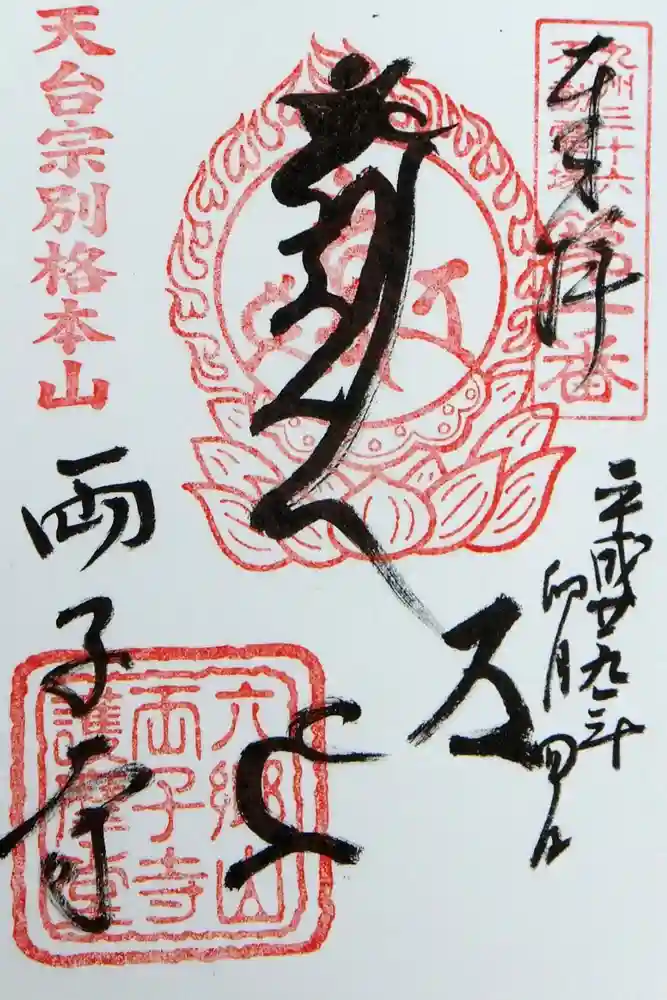 九州三十六
不動霊場
第一番
奉拝
平成廿九年
卯月
天台宗別格本山
両子寺
六郷山
両子寺
護摩堂